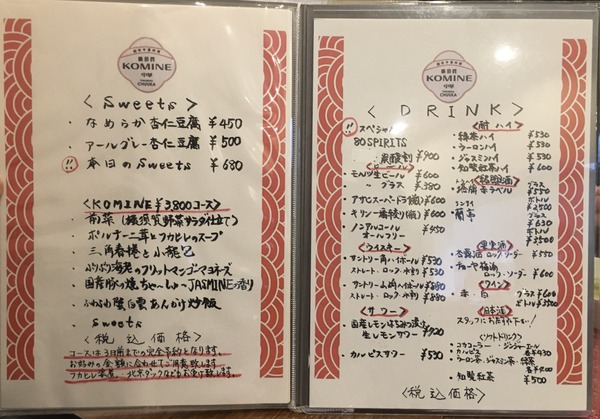 KOMINE
中華
CHUUKA
< Sweets >
・なめらか杏仁豆腐 ¥450
・アールグレー杏仁豆腐 ¥500
!! 本日のSweets ¥680
<KOMINE ¥3800コース>
・前菜(横須賀野菜サラダ仕立て)
・ポルチーニ茸とフカヒレのスープ
・三角春巻と小籠包
・ぷりぷり海老のフリットマンゴーマヨネーズ
国産豚の焼ちゃーしゅーJASMINEの香り
・ふわふわ蟹白雲あんかけ炒飯
・Sweets
<税込価格>
コースは3日前までの完全予約となります。
お好みの金額に合わせてご用意致します
フカヒレ
北京ダックなどもお受け致します。
KOMINE
中華
CHUUKA
< DRINK >
!! スペシャル
80SPIRITS
炭酸割 ¥900
<ビール>
モルツ生ビール ¥600
〃 グラス ¥380
アサヒスーパードライ(瓶) ¥600
キリン一番搾り(瓶) ¥600
ノンアルコール
オールフリー ¥450
<ウイスキー>
サントリー角ハイボール ¥530
ストレート・ロック・水割 ¥530
サントリー
ハイボール ¥580
ストレート・ロック・水割 ¥580
<サワー>
国産レモンはちみつ漬け
生レモンサワー ¥920
カルピスサワー ¥530
<酎ハイ>
・緑茶ハイ ¥530
・ウーロンハイ ¥530
・ジャスミンハイ ¥530
・知覧紅茶ハイ ¥600
<紹興酒>
塔牌赤ラベル
グラス
¥550
ボトル
¥2500
・蘭亭
グラス
¥630
ボトル
¥3500
<果実酒>
・杏露酒 ロック・ソーダ ¥550
・チョーヤ梅酒
ロック・ソーダ ¥600
<ワイン>
・赤・白 グラス ¥600
<日本酒>
スタッフにおたずね下さい!
<ソフトドリンク>
・コカコーラ・ジンジャーエール
・カルピス 各¥430
・ウーロン茶・ジャスミン茶・緑茶
各¥400
・知覧紅茶 ¥500
<税込価格>